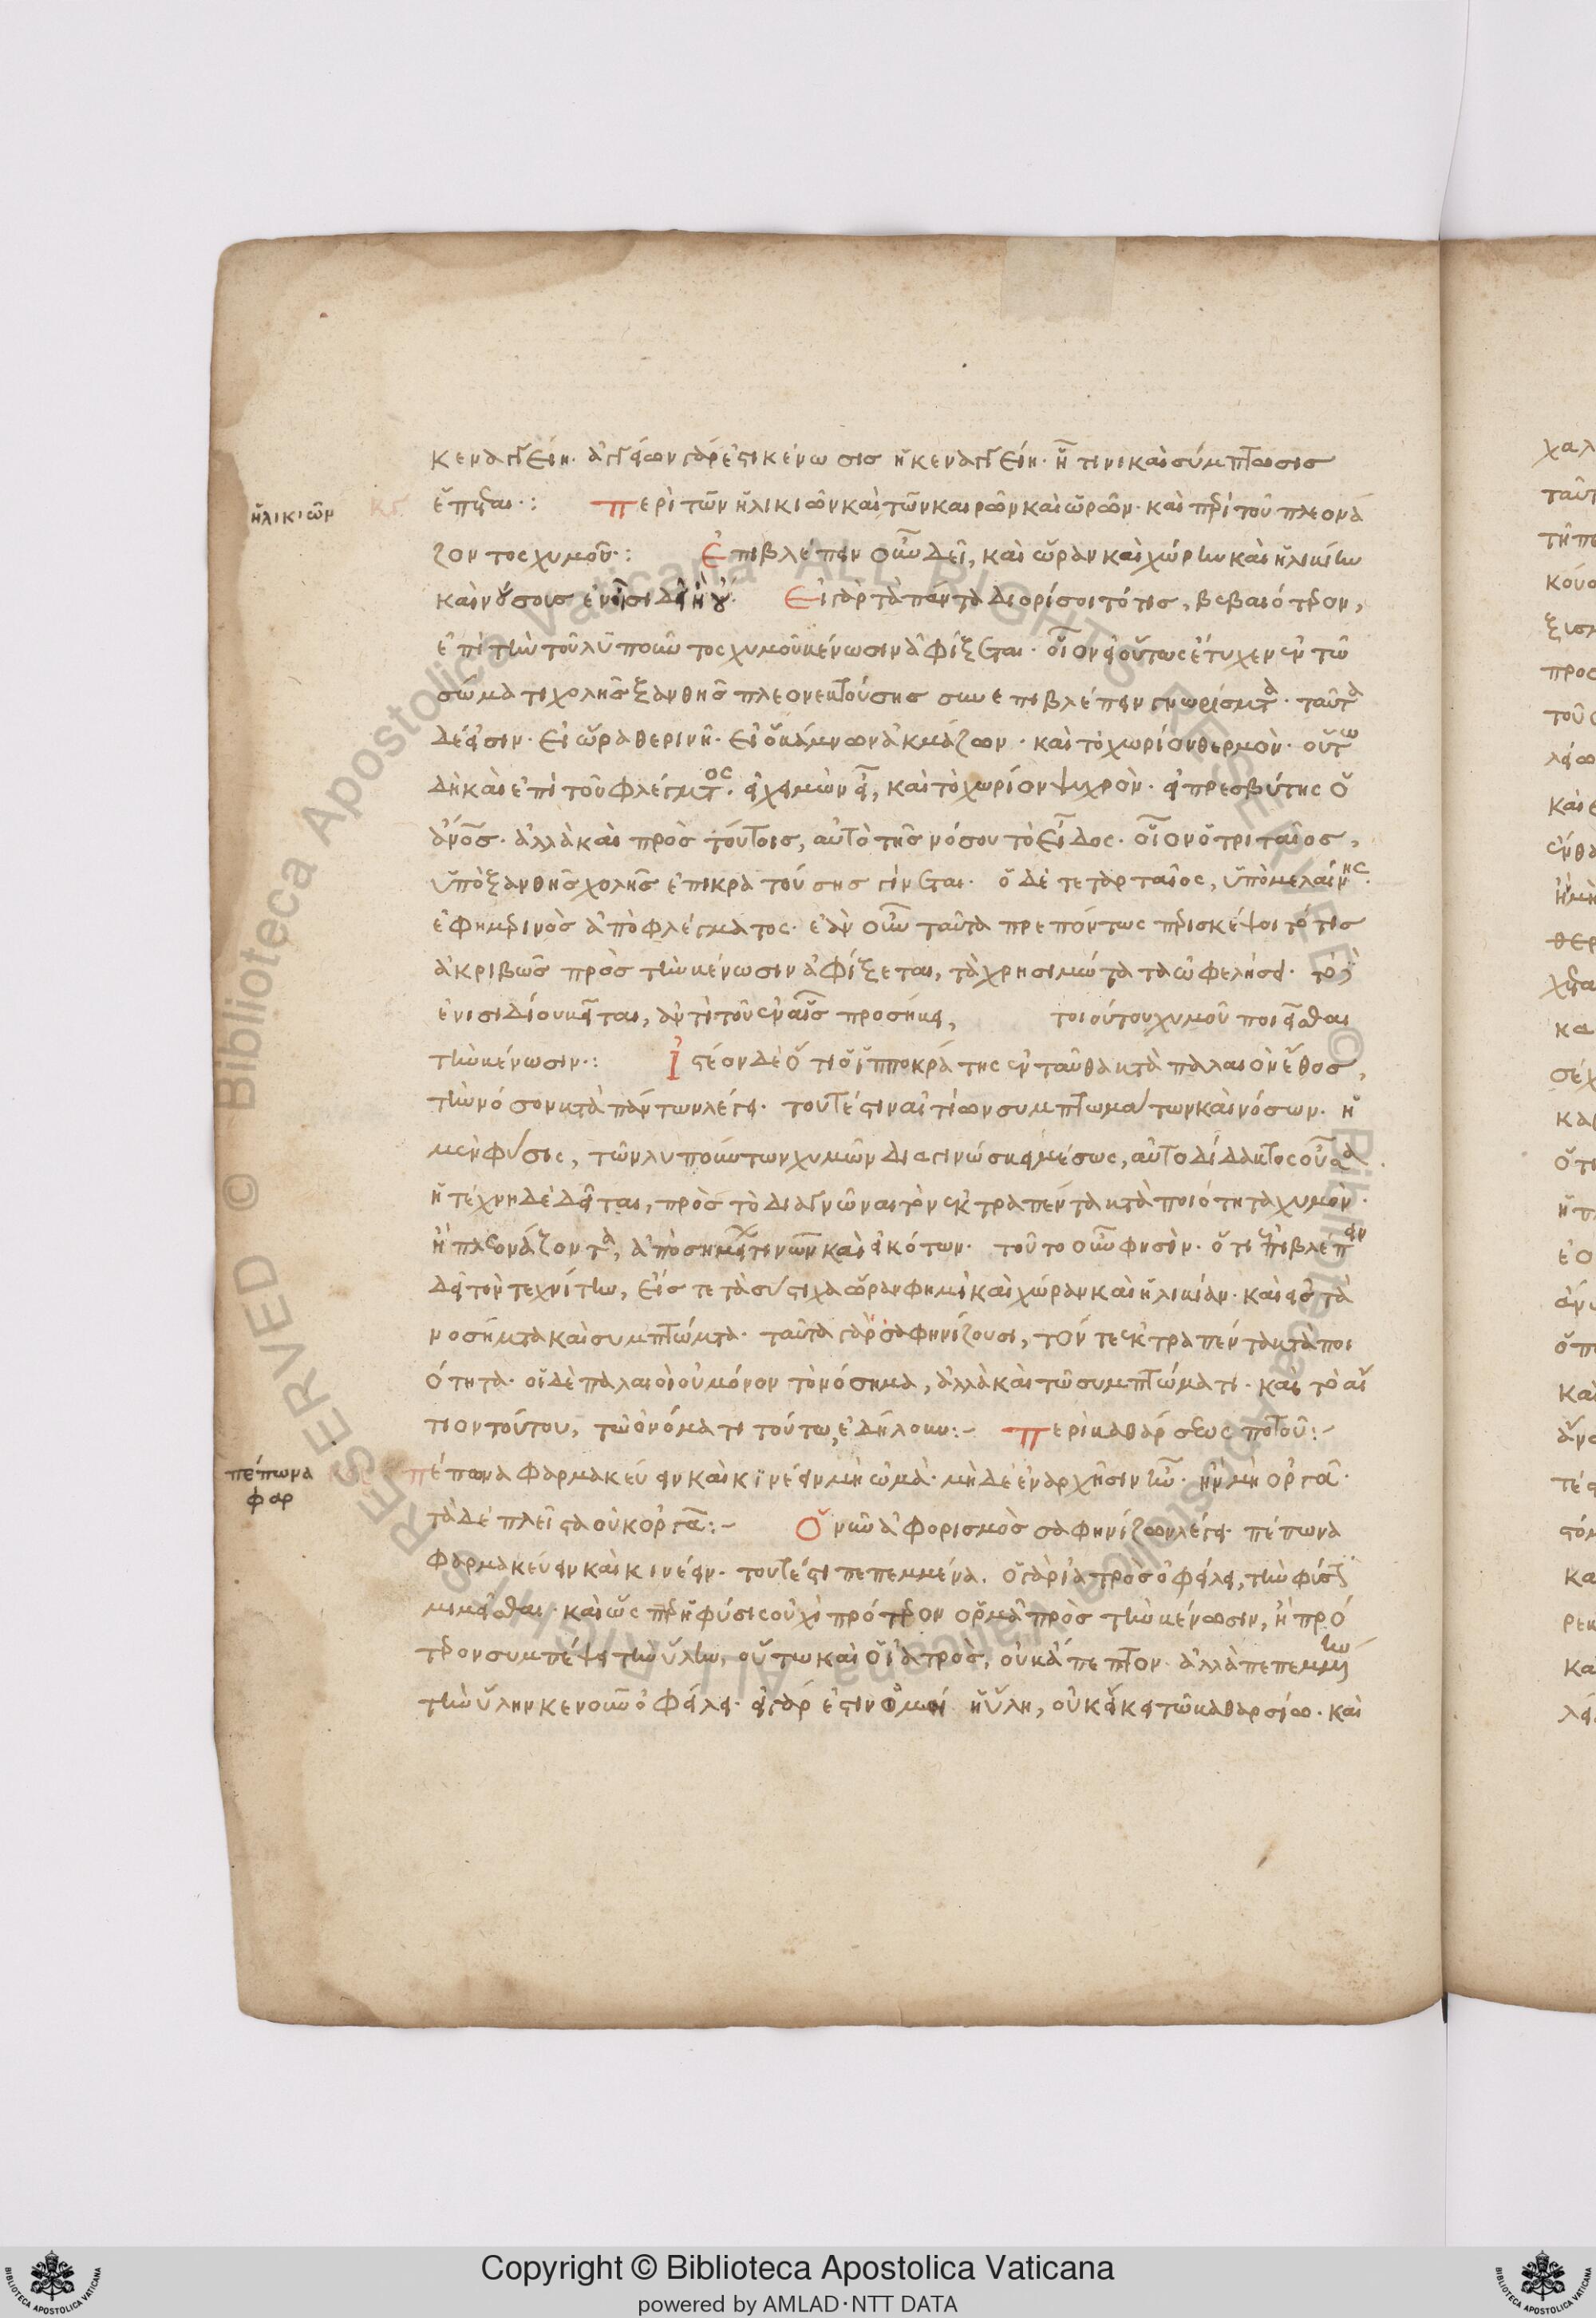 κεναγγείη. ἀγγείων γάρ ἐστι κένωσις ἡ κεναγγείη. ᾗ τινι καὶ σύμπτωσις
ἕπεται·:
Περὶ τῶν ἡλικιῶν καὶ τῶν καιρῶν καὶ ὡρῶν. καὶ περὶ τοῦ πλεονά
ἡλικιῶν
ζοντος χυμοῦ·:
Ἐπιβλέπειν οὖν δεῖ, καὶ ὥραν καὶ χώρην καὶ ἡλικίην
καὶ νούσους ἐν ᾗσι δεῖ ἢ οὔ.
Εἰ γὰρ τὰ πάντα διορίσοιτό τις, βεβαιότερον,
ἐπὶ τὴν τοῦ λυποῦντος χυμοῦ κένωσιν ἀφίξεται. οἷον εἰ οὕτως ἔτυχεν ἐν τῶ
σώματι χολῆς ξανθῆς πλεονεκτούσης συνεπιβλέπειν γνωρίσματα. ταῦτα
δέ εἰσιν. εἰ ὥρα θερινή. εἰ ὁ κάμνων ἀκμάζων. καὶ τὸ χωρίον θερμὸν. οὕτω
δὴ καὶ ἐπὶ τοῦ φλέγματος. εἰ χειμὼν εἴη, καὶ τὸ χωρίον ψυχρὸν. εἰ πρεσβύτης ὁ
ἄνος. ἀλλὰ καὶ πρὸς τούτοις, αὐτὸ τῆς νόσου τὸ εἶδος. οἷον ὁ τριταῖος,
ὑπὸ ξανθῆς χολῆς ἐπικρατούσης γίνεται. ὁ δὲ τεταρταῖος, ὑπὸ μελαίνης.
ἐφημερινὸς ἀπὸ φλέγματος. ἐὰν οὖν ταῦτα πρεπόντως περισκέψοιτό τις
ἀκριβῶς πρὸς τὴν κένωσιν ἀφίξεται, τὰ χρησιμώτατα ὠφελήσει.
ἐνίσι δίου κεῖται, ἀντὶ τοῦ ἐν αἷς προσήκει, τοιούτου χυμοῦ ποιεῖσθαι
τὴν κένωσιν·:
Ἰστέον δὲ ὅτι ὁ ἱπποκράτης ἐνταῦθα κατὰ παλαιὸν ἔθος,
τὴν νόσον κατὰ πάντων λέγει. τουτέστιν αἰτίων συμπτωμάτων καὶ νόσων. ἡ
μὲν φύσις, τῶν λυπούντων χυμῶν διαγινώσκει μέσως, αὐτοδίδακτος οὖσα
ἡ τέχνη δὲ δεῖται, πρὸς τὸ διαγνῶναι τὸν ἐκτραπέντα κατὰ ποιότητα χυμὸν.
ἢ πλεονάζοντα, ἀπὸ σημείων τινῶν καὶ εἰκότων. τοῦτο οὖν φησὶν. ὅτι ἐπιβλέπειν
δεῖ τὸν τεχνίτην, εἴς τε τὰ σύστιχα ὥραν φημὶ καὶ χώραν καὶ ἡλικίαν. καὶ εἰς τὰ
νοσήματα καὶ συμπτώματα. ταῦτα γὰρ σαφηνίζουσι, τόν τε ἐκτραπέντα κατὰ ποι
ότητα. οἱ δὲ παλαιοὶ οὐ μόνον τὸ νόσημα, ἀλλὰ καὶ τῶ συμπτώματι. καὶ τὸ αἴ
τιον τούτου, τῶ ὀνόματι τούτω, ἐδήλουν:-
Περὶ καθάρσεως ποτοῦ:-
πέπωνα
φαρ
πέπονα φαρμακεύειν καὶ κινέειν μὴ ὠμὰ. μὴ δὲ ἐν ἀρχῇσιν ἢν μὴ ὀργᾶ.
τὰ δὲ πλεῖστα οὐκ ὀργᾶ:-
Ὁ νῦν ἀφορισμὸς σαφηνίζων λέγει. πέπωνα
φαρμακεύειν καὶ κινέειν. τουτέστι πεπεμμένα. ὁ γὰρ ἰατρὸς ὀφείλει, τὴν φύσιν
μιμεῖσθαι. καὶ ὥσπερ ἡ φύσις οὐχὶ πρότερον ὁρμᾶ πρὸς τὴν κένωσιν, ἢ πρό
τερον συμπέψει τὴν ὕλην, οὕτω καὶ ὁ ἰατρὸς, οὐκ ἄπεπτον ἀλλὰ πεπεμμένην
τὴν ὕλην κενοῦν ὀφείλει. εἰ γάρ ἐστιν ὠμὴ ἡ ὕλη, οὐκ εἴκει τῶ καθαρσίω. καὶ
Copyright © Biblioteca Apostolica Vaticana
powered by AMLAD·NTT DATA